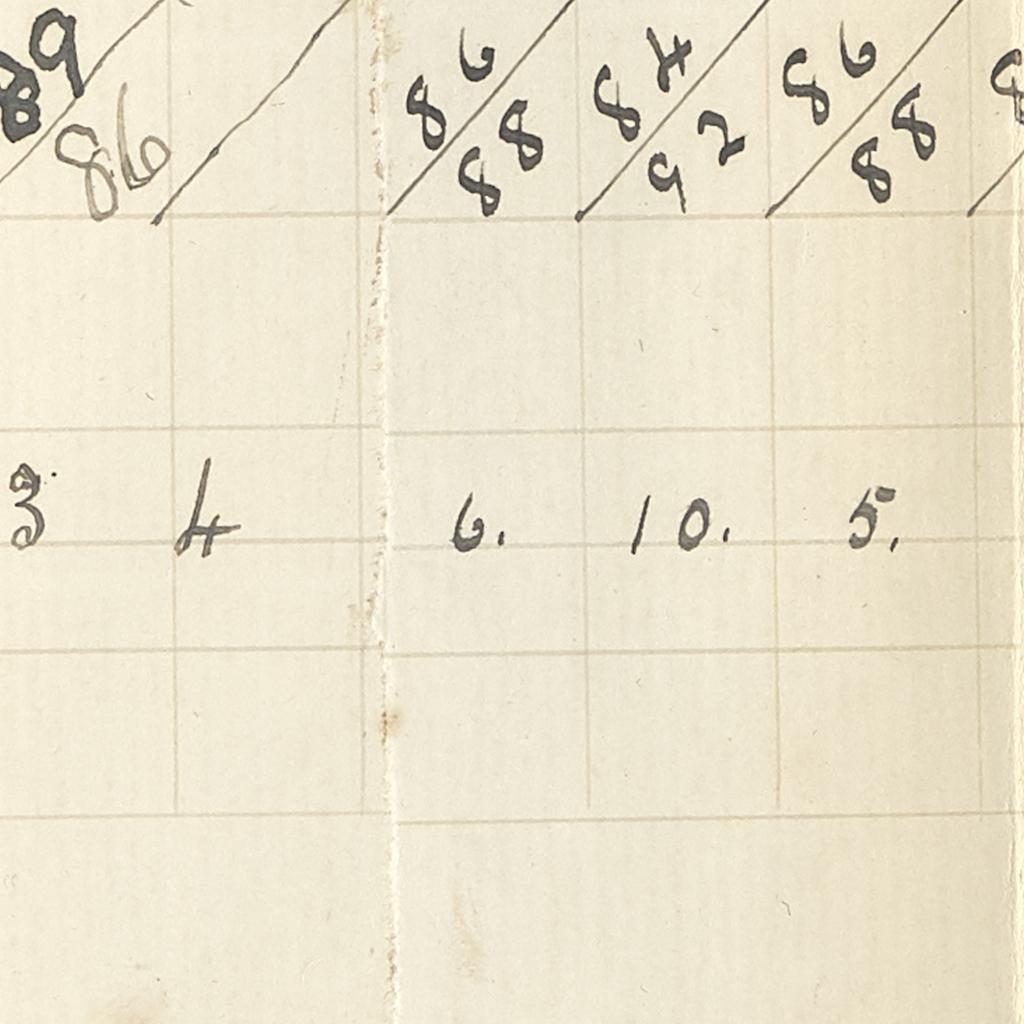 89 / 86 86 / 88 84 / 92 86 / 88 8
3 4 6. 10. 5.